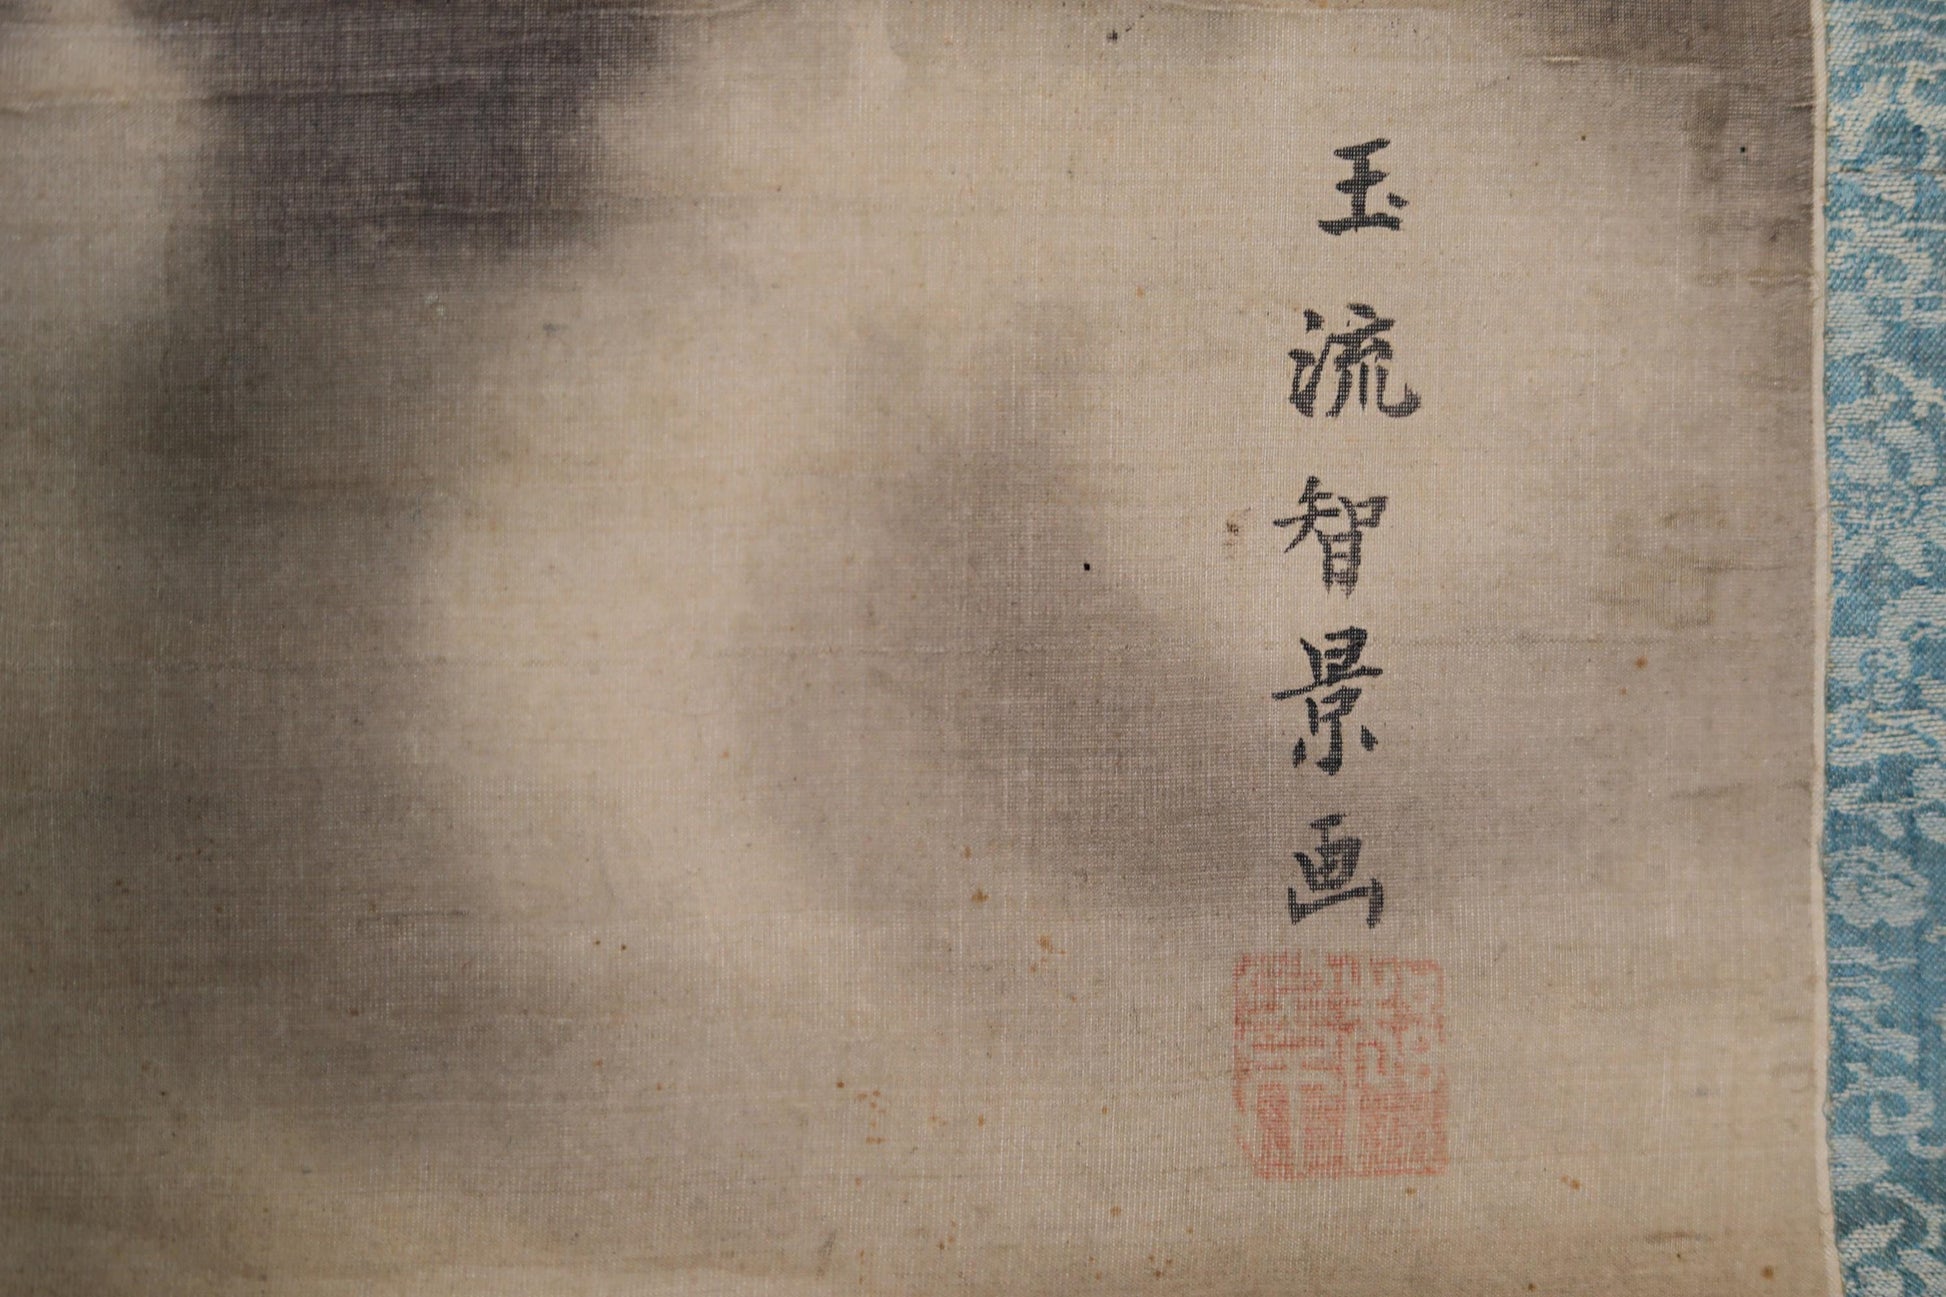 玉流智景画